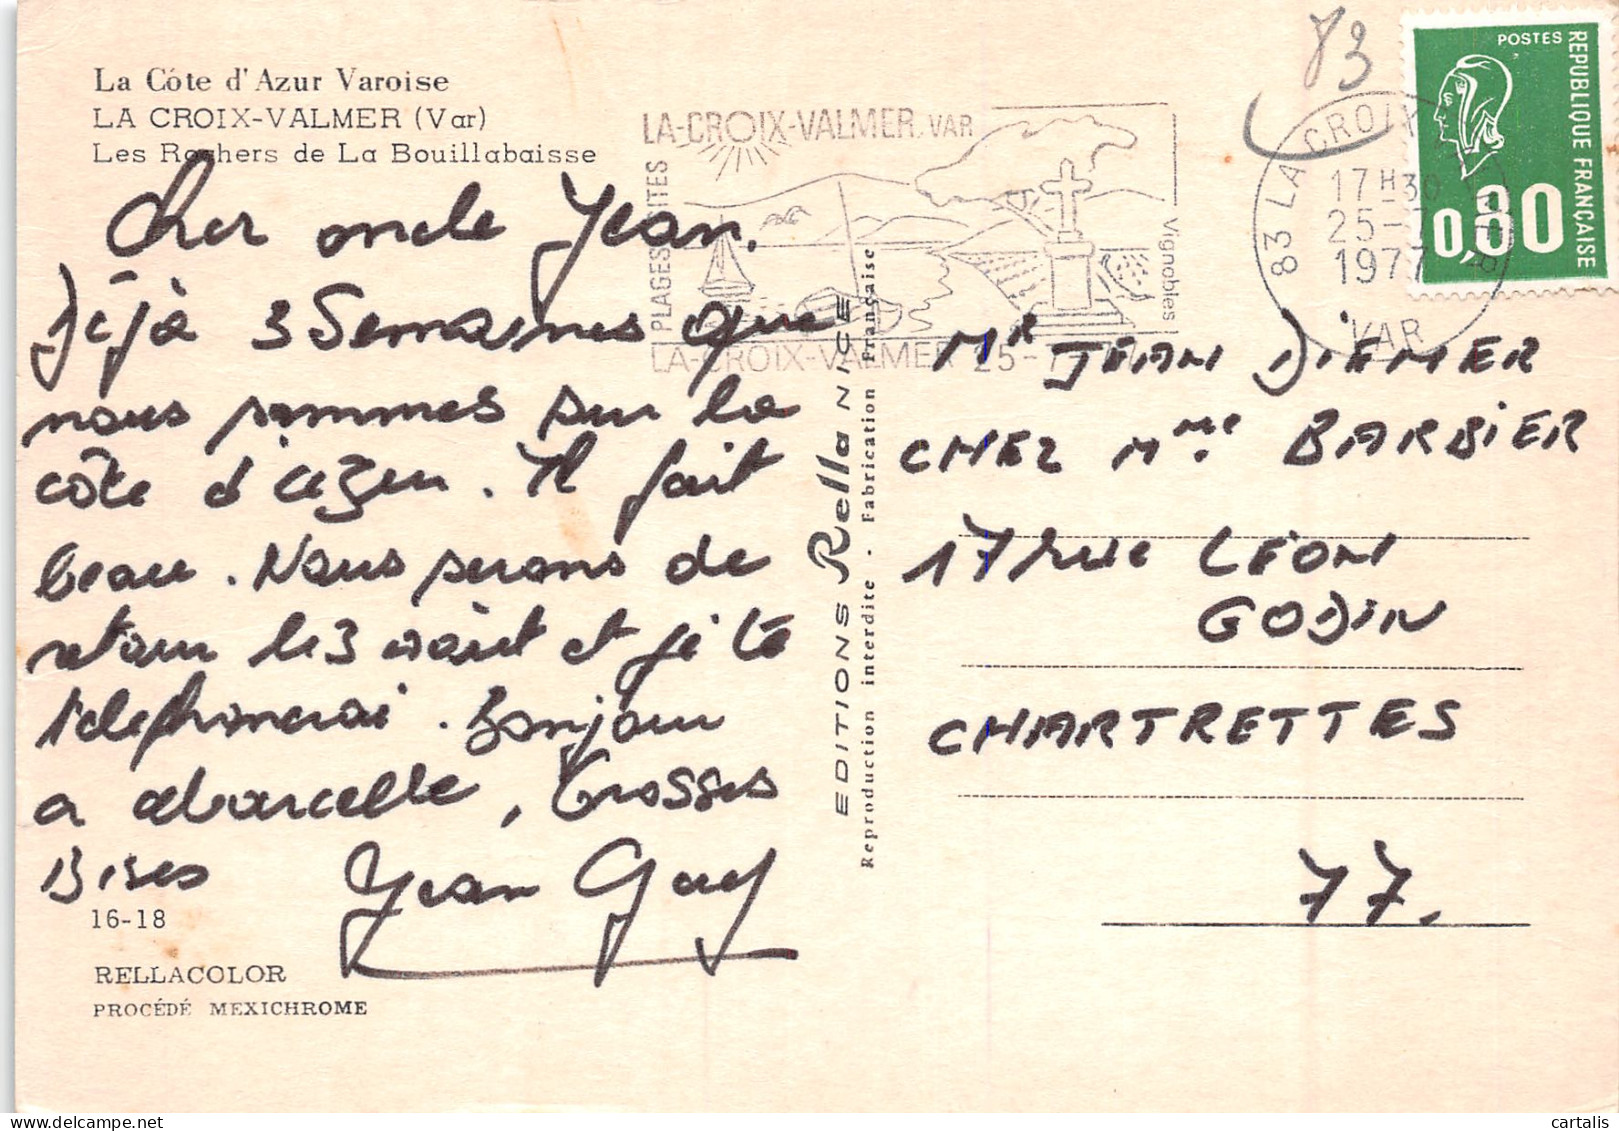 La Côte d'Azur Varoise
LA CROIX-VALMER (Var)
Les Rochers de La Bouillabaisse
Cher oncle Jean.
Déjà 3 Semaines que
nous sommes sur la
côte d'azur. Il fait
beau. Nous serons de
retour le 3 août et je te
téléphonerai. Bonjour
a Marcelle, Grosses
Bises Jean Guy
16-18
RELLACOLOR
PROCÉDÉ MEXICHROME
LA-CROIX-VALMER. VAR
PLAGES
Vignobles
LA-CROIX-VALMER 25-
EDITIONS Rella NICE
Reproduction interdite - Fabrication Française
83
83 LA CROIX
17 H 30
25-7
1977
VAR
POSTES
REPUBLIQUE FRANÇAISE
0,80
Mr JEAN DIEMER
CHEZ Mme BARBIER
17 rue LEON
GODIN
CHARTRETTES
77.